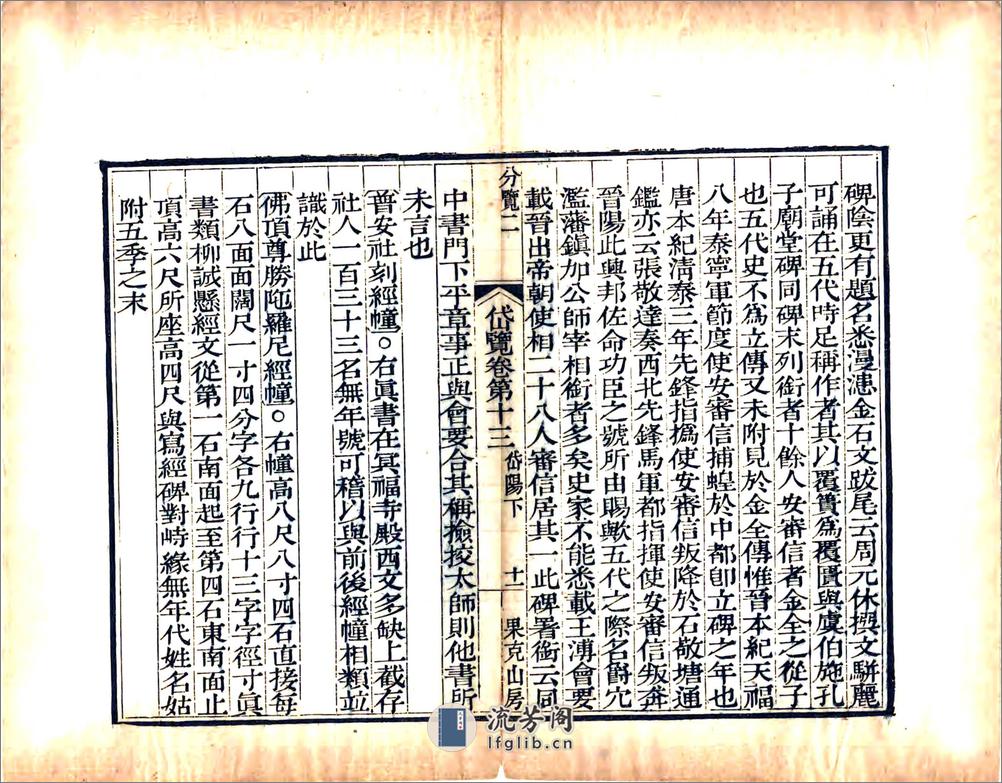 碑陰更有題名悉漫漶金石文跋尾云周元休撰文駢麗
可誦在五代時足稱作者其以覆簣為覆匱與虞伯施孔
子廟堂碑同碑末列銜者十餘人安審信者金全之從子
也五代史不為立傳又未附見於金全傳惟晉本紀天福
八年泰寧軍節度使安審信捕蝗於中都卽立碑之年也
唐本紀清泰三年先鋒指揮使安審信叛降於石敬塘通
鑑亦云張敬達奏西北先鋒馬軍都指揮使安審信叛奔
晉陽此興邦佐命功臣之號所由賜歟五代之際名爵冗
濫藩鎮加公師宰相銜者多矣史家不能悉載王溥會要
載晉出帝朝使相二十八人審信居其一此碑署銜云同
分覽二
岱覽卷第十三 岱陽下 十二 果克山房
中書門下平章事正與會要合其稱撿挍太師則他書所
未言也
普安社刻經幢○右眞書在冥福寺殿西文多缺上截存
社人一百三十三名無年號可稽以與前後經幢相類並
識於此
佛頂尊勝陁羅尼經幢○右幢高八尺八寸四石直接每
石八面面闊尺一寸四分字各九行行十三字字徑寸眞
書類柳誠懸經文從第一石南面起至第四石東南面止
頂高六尺所座高四尺與寫經碑對峙緣無年代姓名姑
附五季之末
流芳阁
lfglib.cn